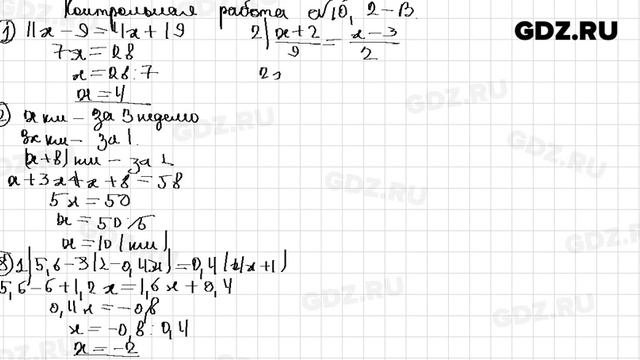 Контрольная работа №10, 2-В.
GDZ.RU
1) 11x - 9 = 4x + 19
7x = 28
x = 28 : 7
x = 4
2) (x+2)/9 = (x-3)/2
2) x км - за 3 неделю
3x км - за 1.
(x+8) км - за 2
x + 3x + x + 8 = 58
5x = 50
x = 50 : 5
x = 10 (км)
3) 1) 5,6 - 3(2 - 0,4x) = 0,4(4x + 1)
5,6 - 6 + 1,2x = 1,6x + 0,4
0,4x = -0,8
x = -0,8 : 0,4
x = -2
GDZ.RU
GDZ.RU
GDZ.RU
GDZ.RU
GDZ.RU
GDZ.RU